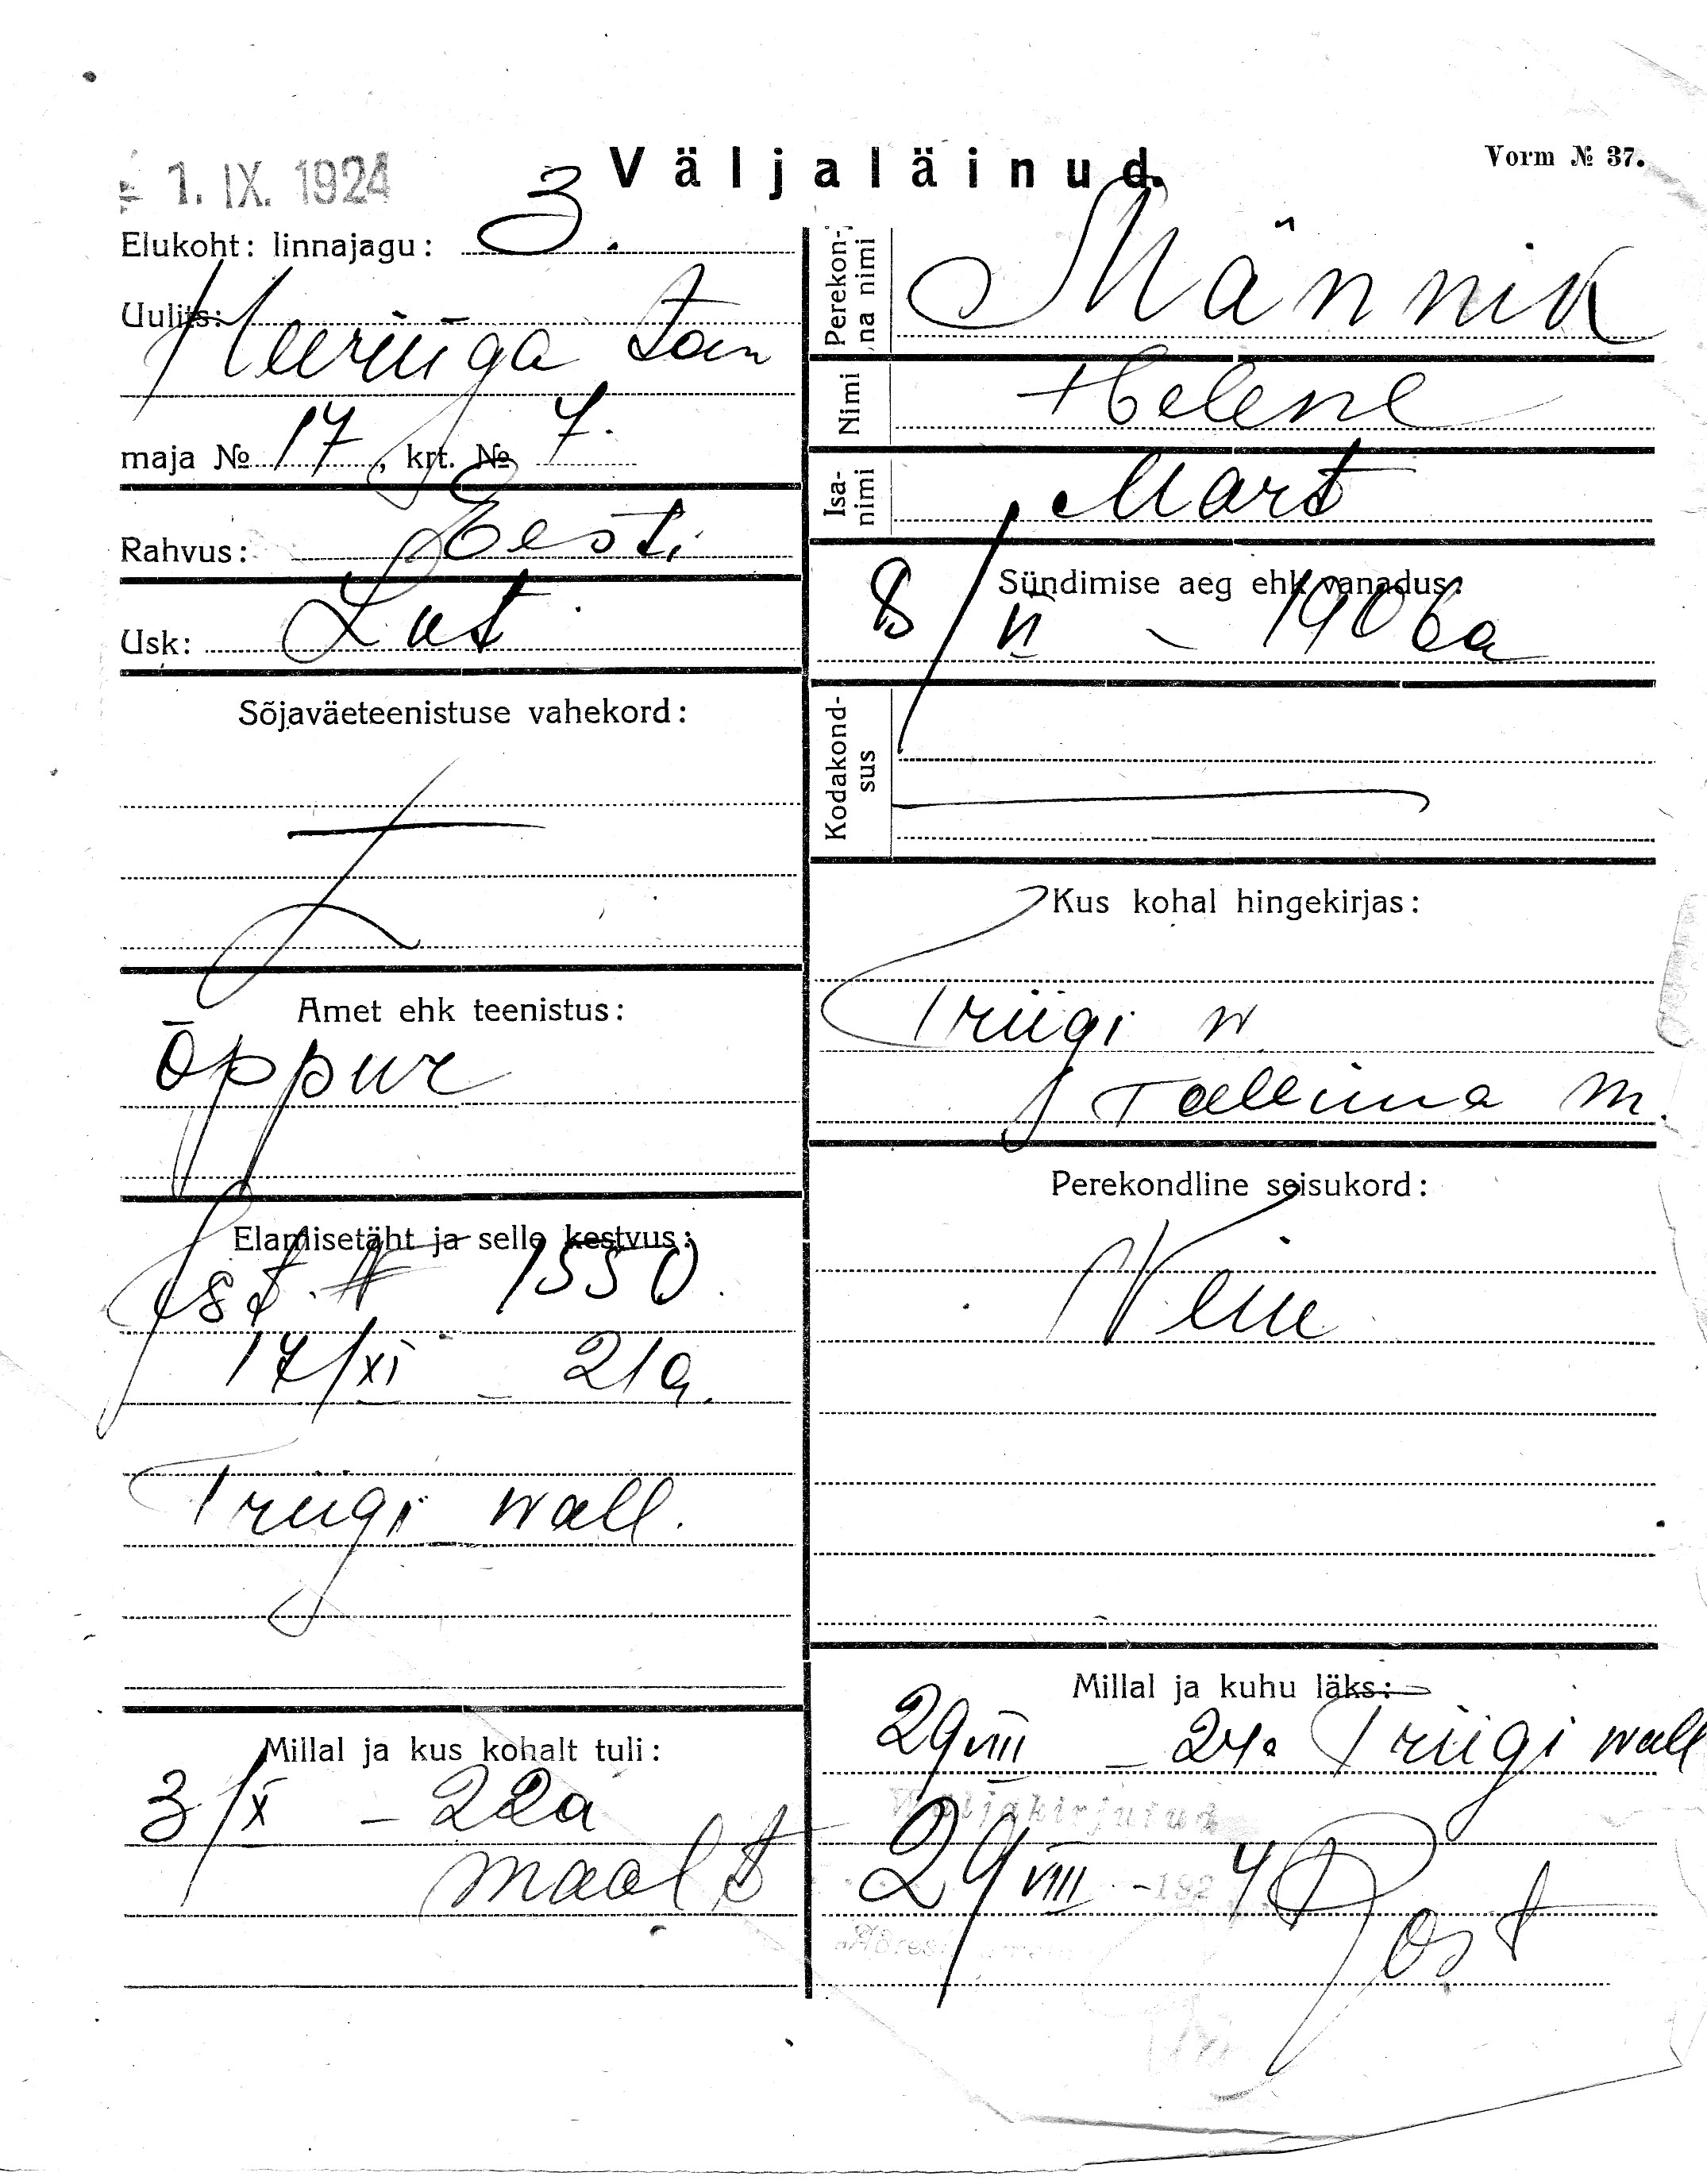 1. IX. 1924
Väljaläinud.
Vorm № 37.
Elukoht: linnajagu: 3.
Uulits:
tän
maja № 17, krt. № 7.
Rahvus: Eesti
Usk: Lut
Sõjaväeteenistuse vahekord:
Amet ehk teenistus:
Õppur
Elamisetäht ja selle kestvus:
№ 1550.
17/XI – 21a.
Triigi wall.
Millal ja kus kohalt tuli:
3/X – 22a
maalt
Perekonna nimi Männik
Nimi Helene
Isanimi Mart
Sündimise aeg ehk vanadus:
8/II – 1906a
Kodakondsus
Kus kohal hingekirjas:
Triigi w.
Tallinna m.
Perekondline seisukord:
Millal ja kuhu läks:
29 VIII – 24a Triigi wall
Väljakirjutud
29/VIII -1924